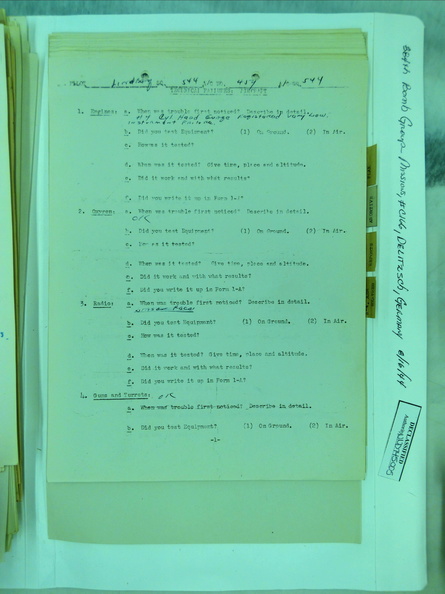 544 457 544
TECHNICAL FAILURES REPORT
1. Engines: a. When was trouble first noticed? Describe in detail.
#4 Cyl Head Gauge Registered very low.
instrument failure
b. Did you test Equipment? (1) On Ground. (2) In Air.
c. How was it tested?
d. When was it tested? Give time, place and altitude.
e. Did it work and with what results?
f. Did you write it up in Form 1-A?
2. a. When was trouble first noticed? Describe in Detail.
OK
b. Did you test Equipment? (1) On Ground. (2) In Air.
c. How was it tested?
d. When was it tested? Give time, place and altitude.
e. Did it work and with what results?
f. Did you write it up in Form 1-A?
3. Radio: a. When was trouble first noticed? Describe in detail.
b. Did you test Equipment? (1) On Ground. (2) In Air.
c. How was it tested?
d. When was it tested? Give time, place and altitude.
e. Did it work and with what results?
f. Did you write it up in Form 1-A?
4. Guns and Turrets: OK
a. When was trouble first noticed? Describe in detail.
b. Did you test Equipment? (1) On Ground. (2) In Air.
-1-
384th Bomb Group Missions, #C166, Delitzsch, Germany 8/16/44
DECLASSIFIED
Authority NND745005